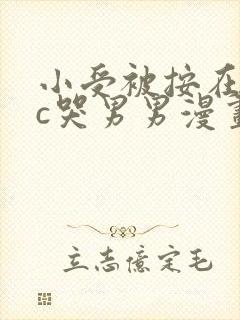 小受被按在
c哭男男漫畫
立志億定毛